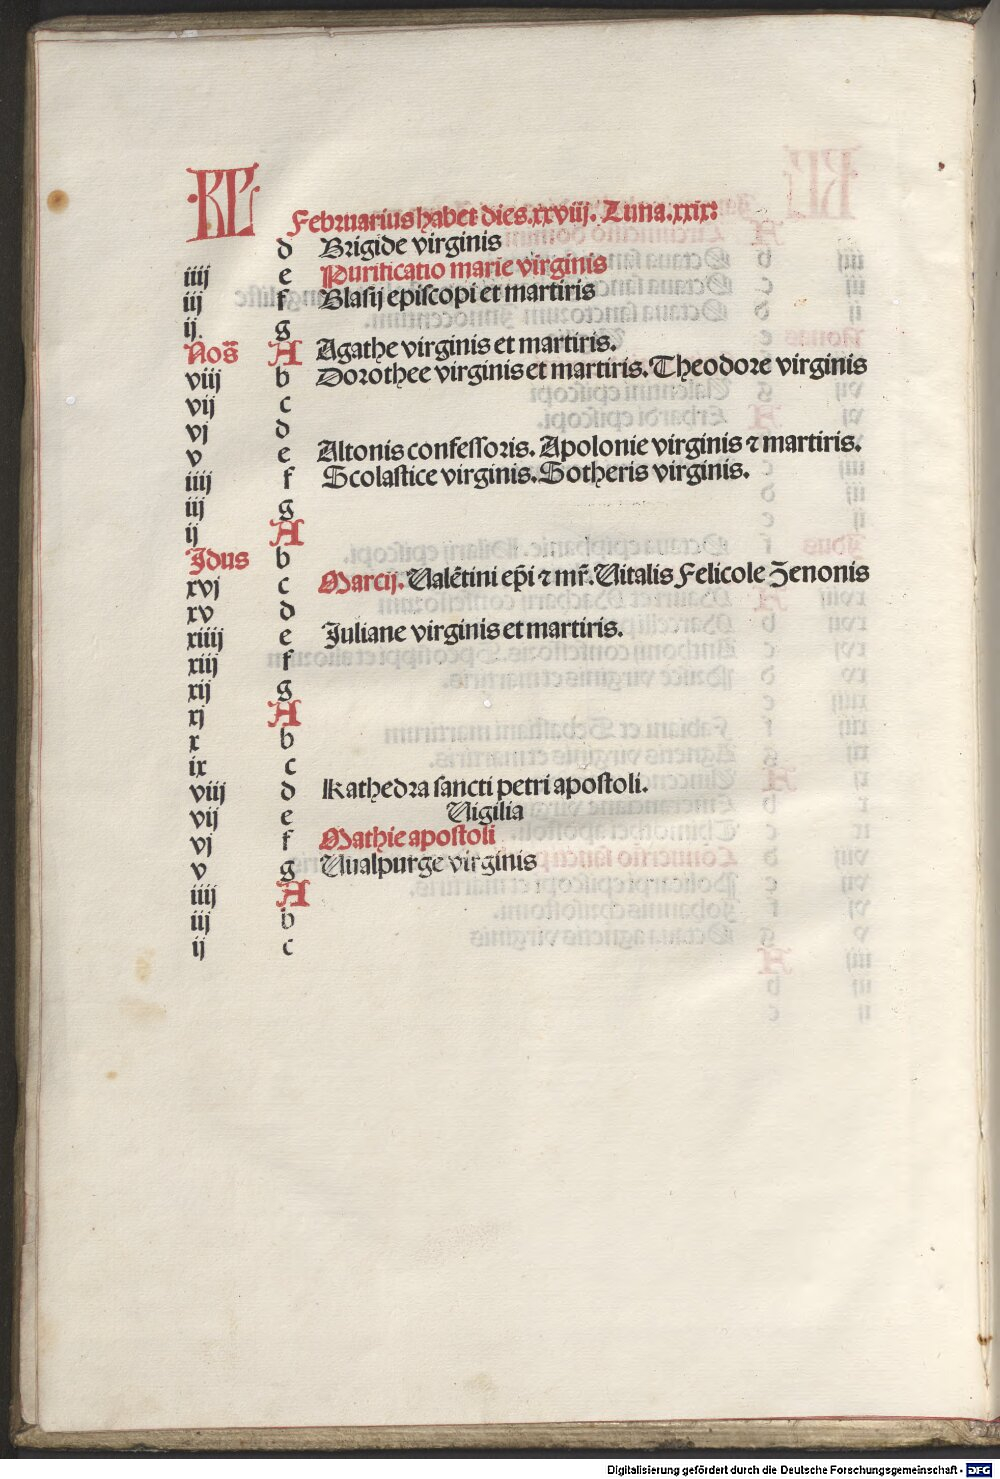 KL
Februarius habet dies.xxviij. Luna.xxix:
d Brigide virginis
iiij e Purificatio marie virginis
iij f Blasij episcopi et martiris
ij. g
Nos̄ A Agathe virginis et martiris.
viij b Dorothee virginis et martiris. Theodore virginis
vij c
vj d
v e Altonis confessoris. Apolonie virginis ⁊ martiris.
iiij f Scolastice virginis. Sotheris virginis.
iij g
ij A
Jdus b
xvj c Marcij. Valētini ep̄i ⁊ mr̄. Vitalis Felicole Zenonis
xv d
xiiij e Juliane virginis et martiris.
xiij f
xij g
xj A
x b
ix c
viij d Kathedra sancti petri apostoli.
vij e Vigilia
vj f Mathie apostoli
v g Vualpurge virginis
iiij A
iij b
ij c
Digitalisierung gefördert durch die Deutsche Forschungsgemeinschaft - DFG